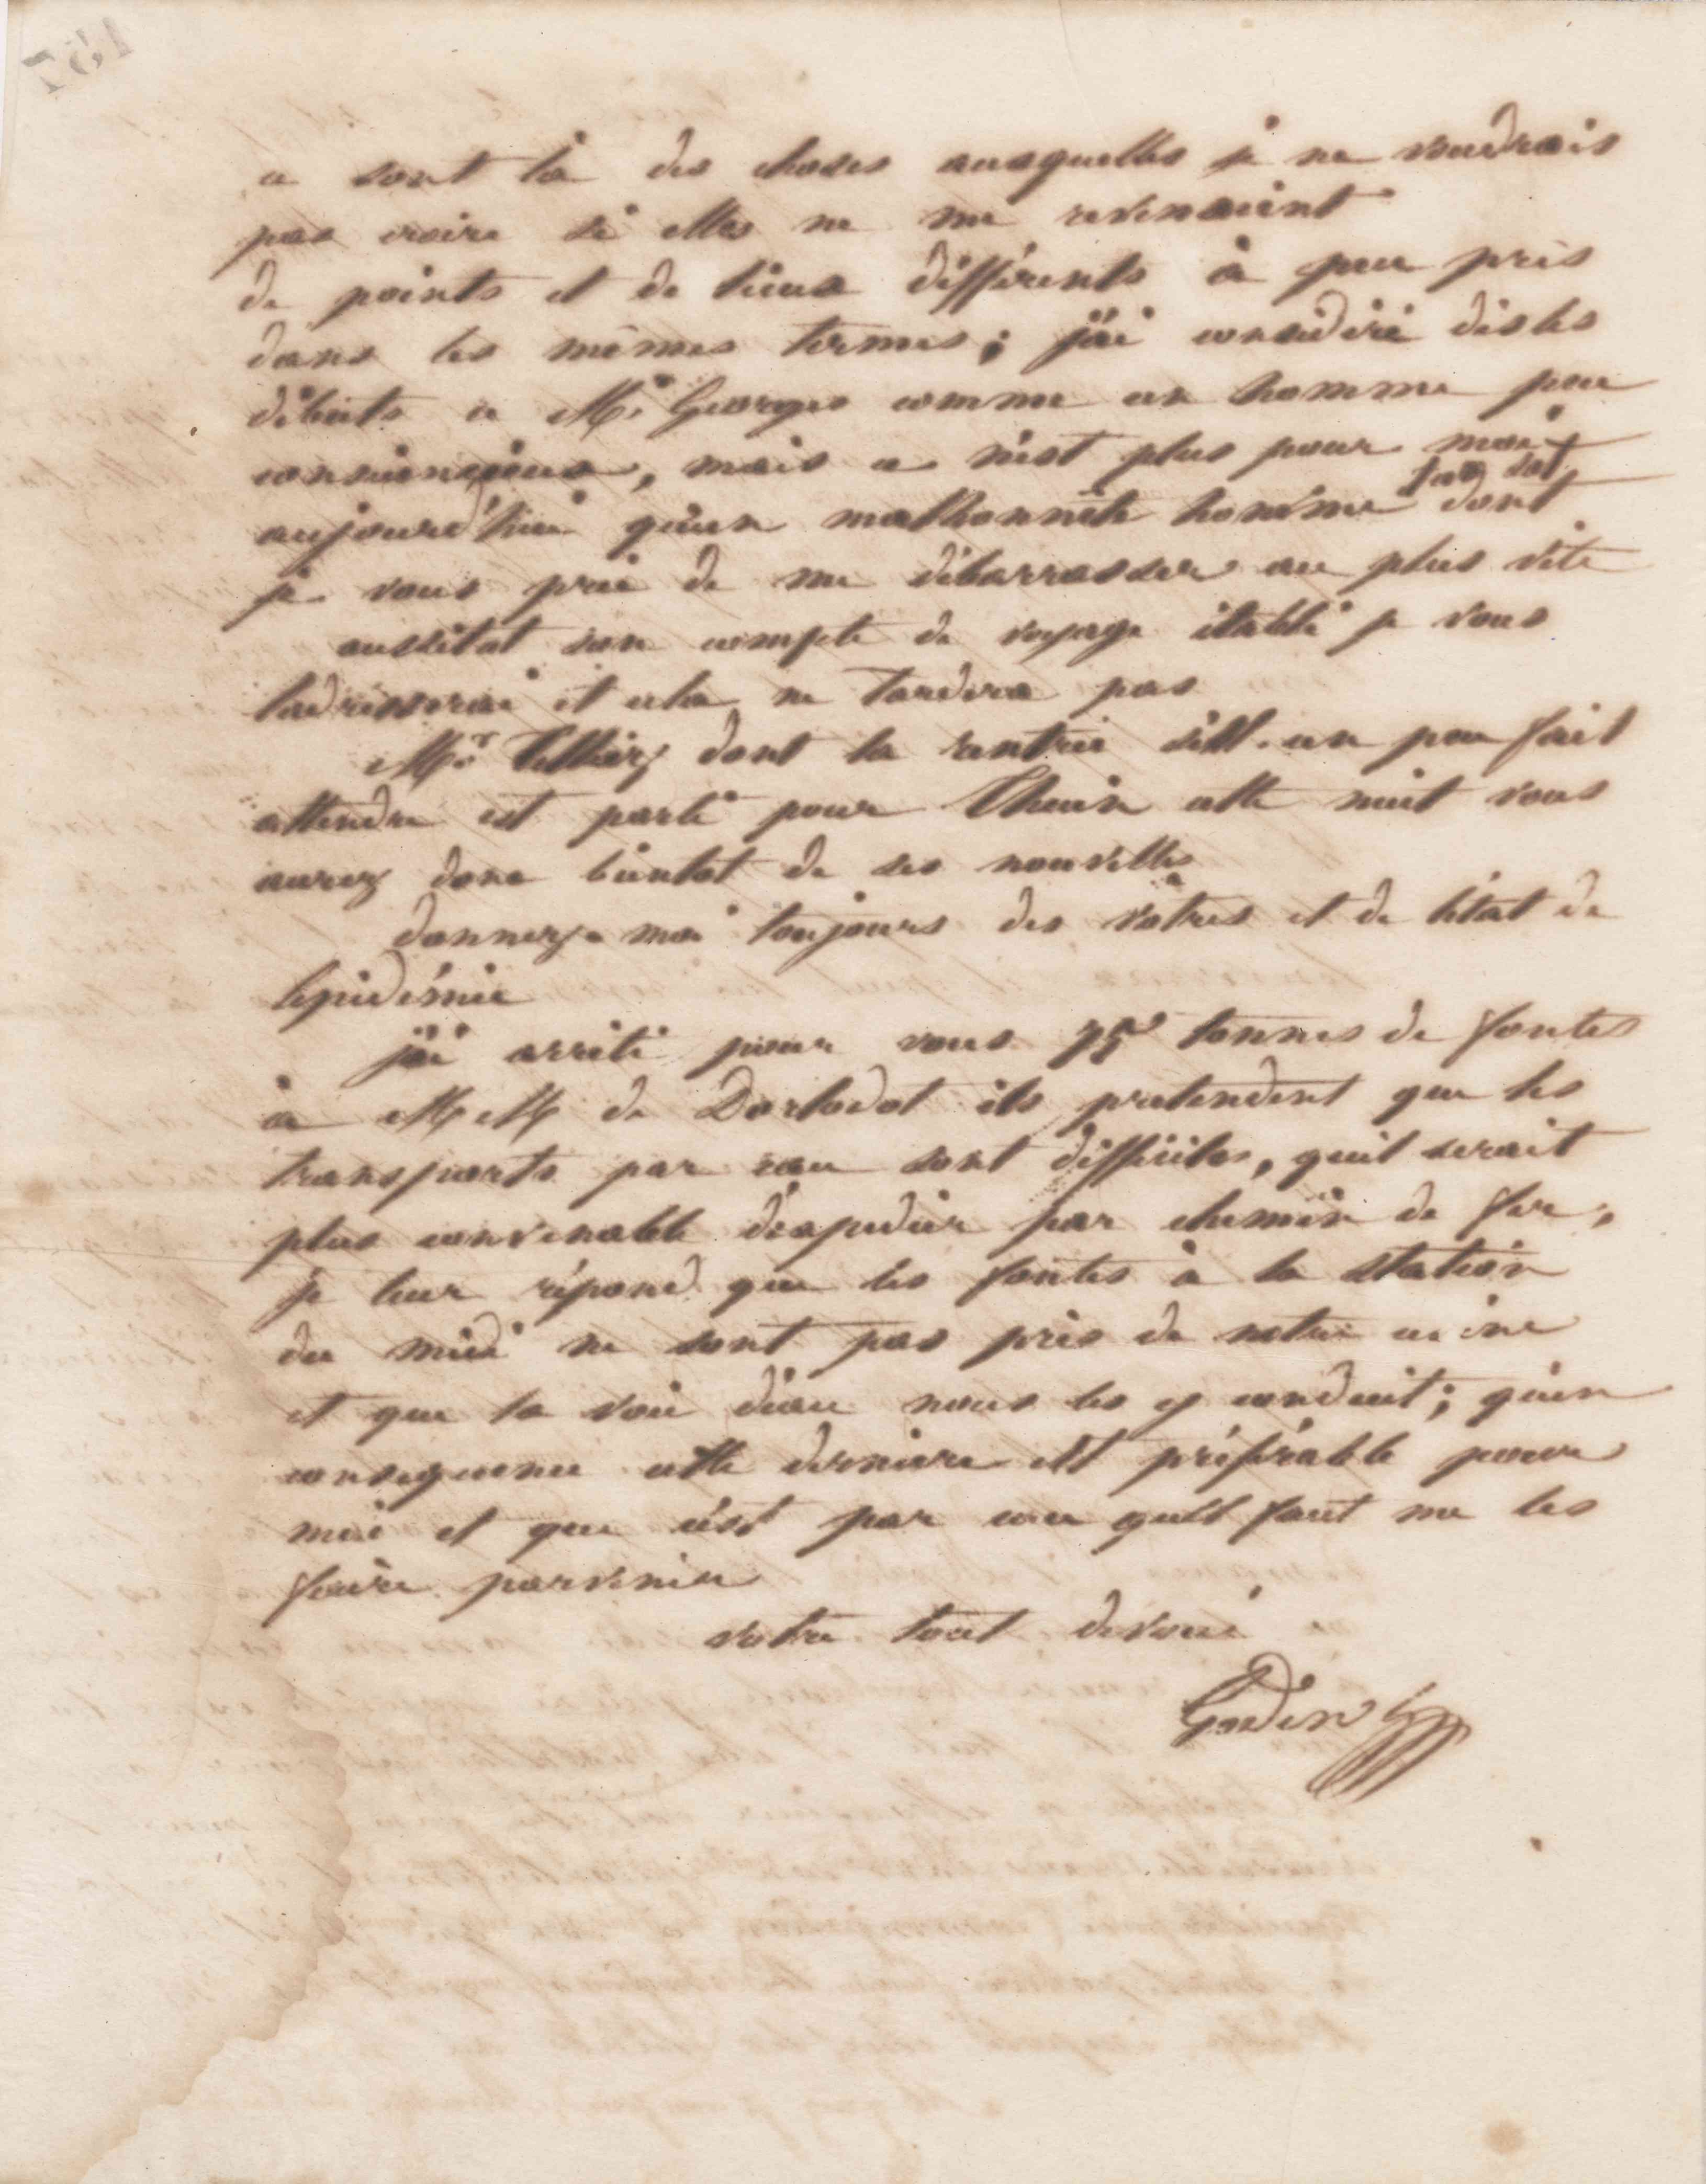 ce sont là des choses auxquelles je ne voudrais
pas croire si elles ne me revenaient
de points et de lieux différents à peu près
dans les mêmes termes ; j'ai considéré dès les
débuts ce Mr Georges comme un homme peu
consciencieux, mais ce n'est plus pour moi
aujourd'hui qu'un malhonnête homme dont
je vous prie de me débarrasser au plus vite
aussitot son compte de voyage établi je vous
ladresserai et cela ne tardera pas
Mr Tellier, dont la rentrée s'est un peu fait
attendre est parti pour Thuin cette nuit vous
aurez donc bientot de ses nouvelles
donnez moi toujours des vôtres et de l'état de
lepidémie
j'ai arrêté pour vous 75 tonnes de fontes
à MM de Dorlodot ils pretendent que les
transports par eau sont difficiles, quil serait
plus convenable d'expédier par chemin de fer,
je leur répond que les fontes à la station
du midi ne sont pas près de notre usine
et que la voie d'eau nous les y conduit ; qu'en
consequence cette derniere est préférable pour
moi et que c'est par eau quil faut me les
faire parvenir
votre tout devoué
Godin